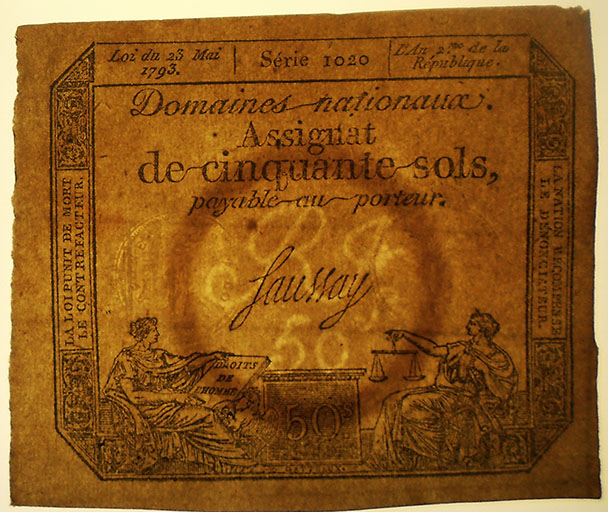 Loi du 23 Mai
1793.
Série 1020
L'An 2.me de la
République.
Domaines nationaux.
Assignat
de cinquante sols,
payable au porteur.
LA LOI PUNIT DE MORT
LE CONTREFACTEUR.
LA NATION RECOMPENSE
LE DENONCIATEUR.
Saussay
50
DROITS
DE
L'HOMME
50s